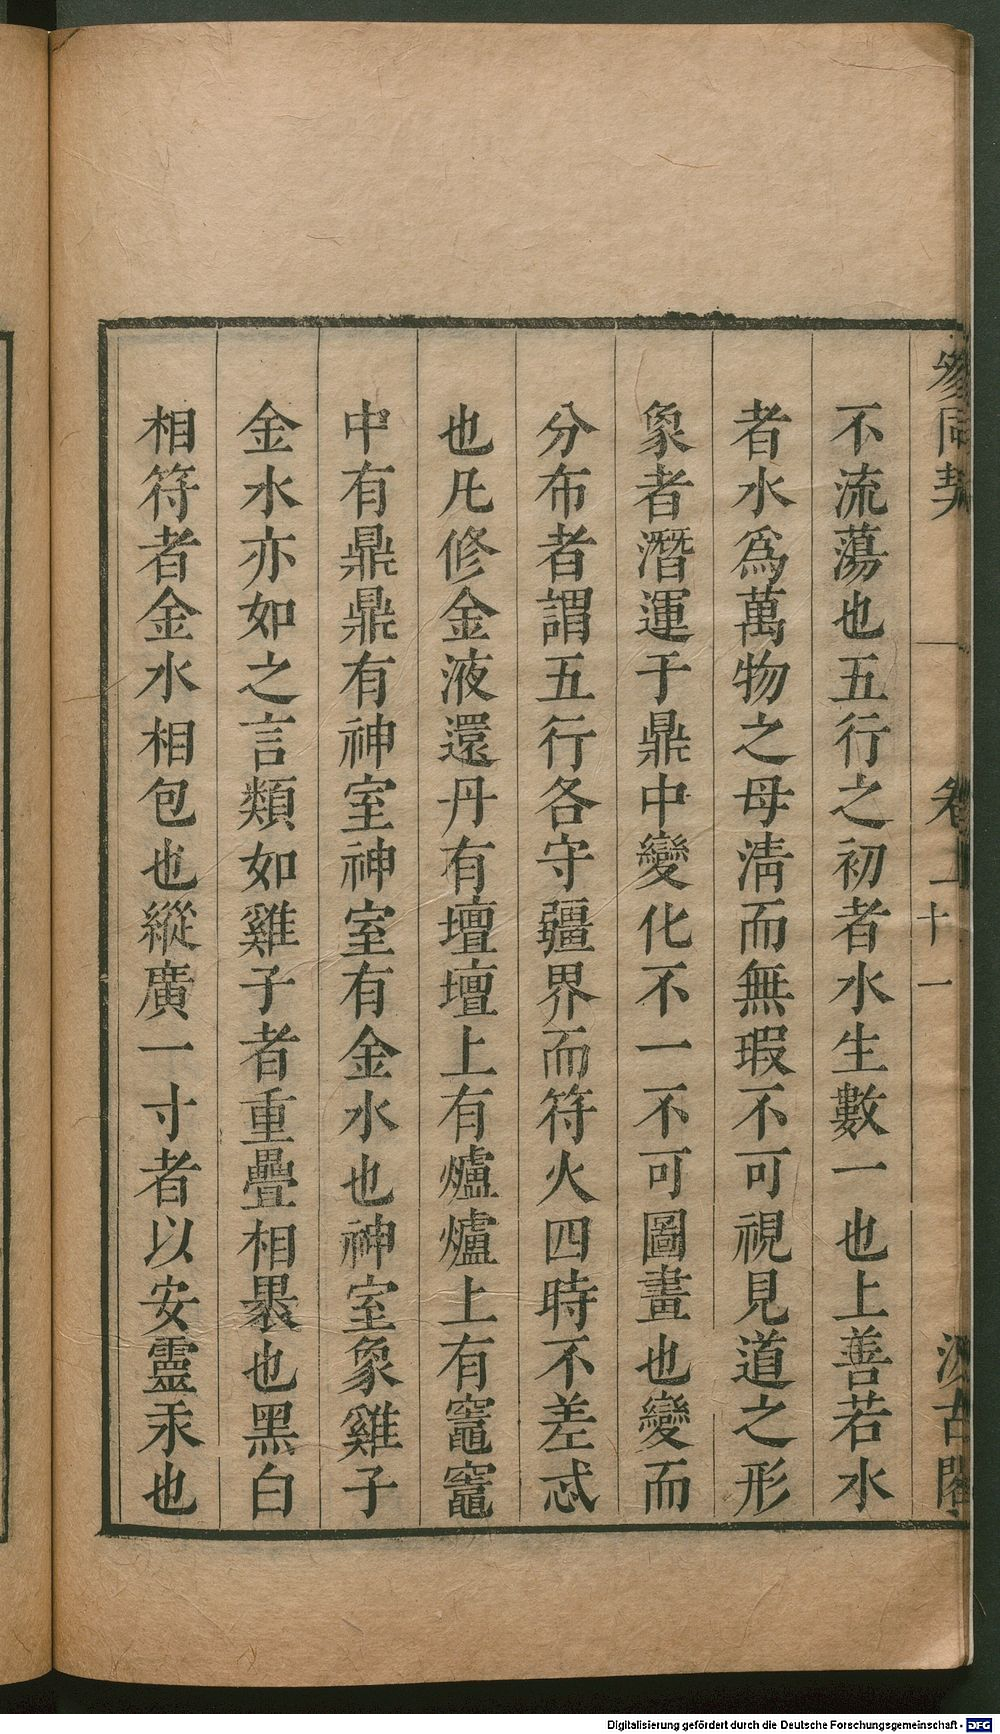 參同契
卷上
十一
汲古閣
不流蕩也五行之初者水生數一也上善若水
者水為萬物之母淸而無瑕不可視見道之形
象者潛運于鼎中變化不一不可圖畫也變而
分布者謂五行各守疆界而符火四時不差忒
也凡修金液還丹有壇壇上有爐爐上有竈竈
中有鼎鼎有神室神室有金水也神室象雞子
金水亦如之言類如雞子者重疊相褁也黑白
相符者金水相包也縱廣一寸者以安靈汞也
Digitalisierung gefördert durch die Deutsche Forschungsgemeinschaft - DFG